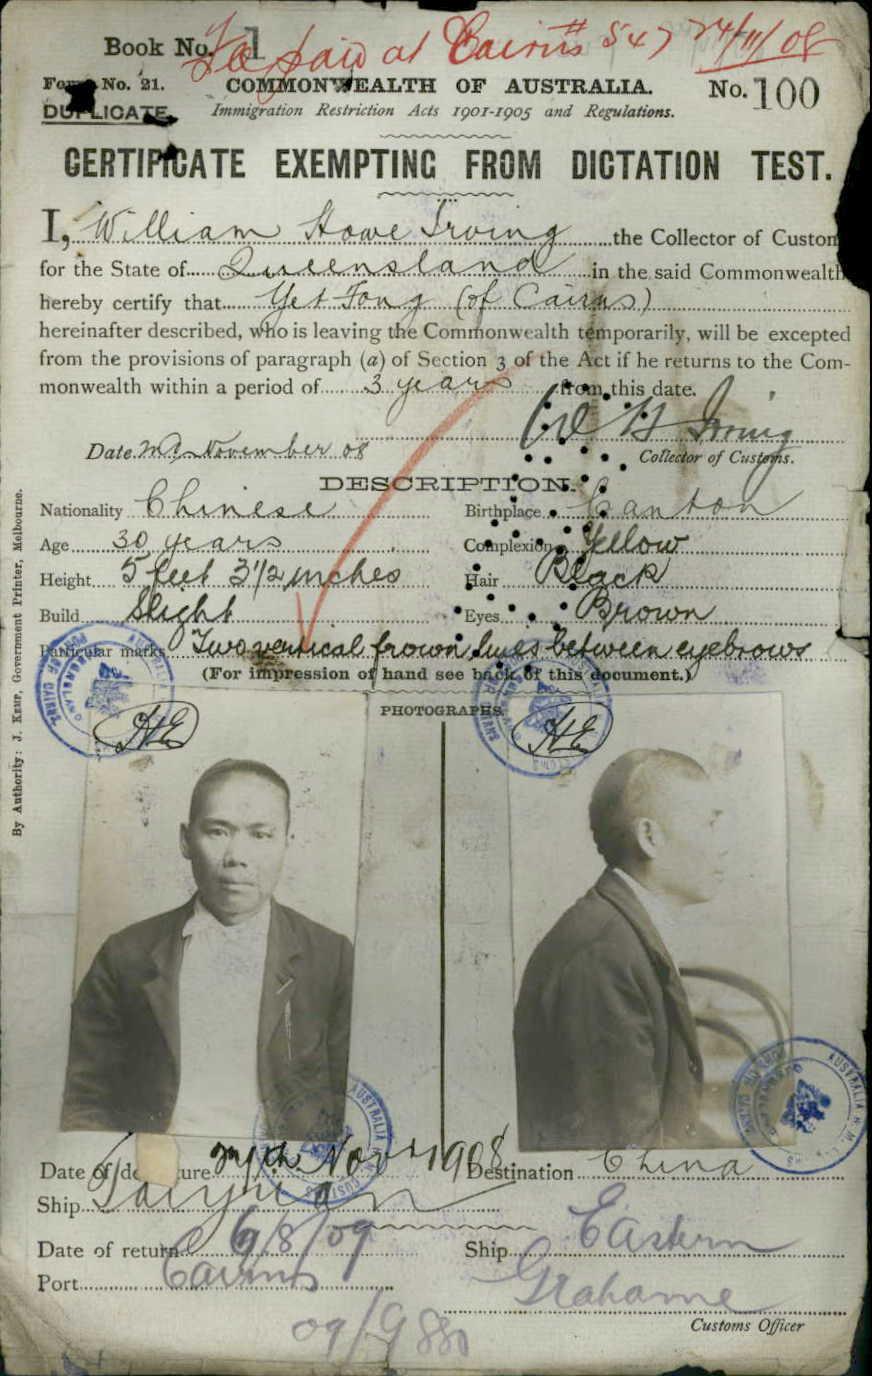 Book No. 1
Paid at Cairns 547 24/11/08
Form No. 21.
COMMONWEALTH OF AUSTRALIA.
No. 100
DUPLICATE.
Immigration Restriction Acts 1901-1905 and Regulations.
CERTIFICATE EXEMPTING FROM DICTATION TEST.
I, William Howe Irving the Collector of Custom
for the State of Queensland in the said Commonwealth
hereby certify that Yet Fong (of Cairns)
hereinafter described, who is leaving the Commonwealth temporarily, will be excepted
from the provisions of paragraph (a) of Section 3 of the Act if he returns to the Com-
monwealth within a period of 3 years from this date.
W H Irving
Date November 08
Collector of Customs.
DESCRIPTION.
Nationality Chinese Birthplace Canton
Age 30 years Complexion Yellow
Height 5 feet 3 1/2 inches Hair Black
Build Slight Eyes Brown
Particular marks Two vertical frown lines between eyebrows
(For impression of hand see back of this document.)
PHOTOGRAPHS.
By Authority: J. KEMP, Government Printer, Melbourne.
Date of departure Nov 1908 Destination China
Ship Taiyuan
Date of return 6/8/09 Ship Eastern
Port Cairns Grahame
Customs Officer
09/9880